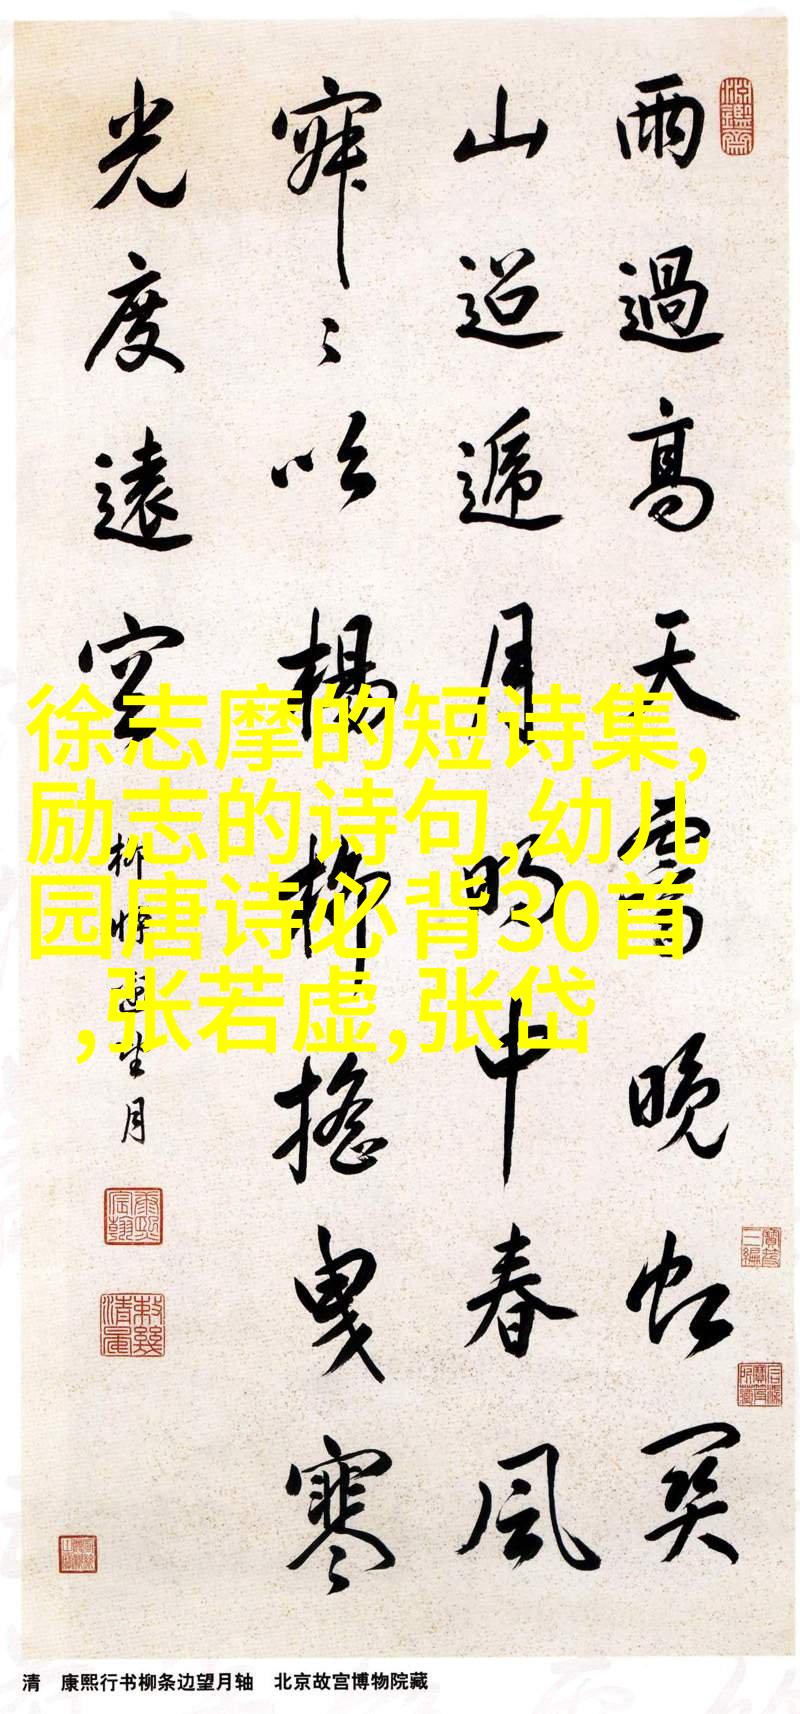 雨過高天霽晚虹関
山迢遞月明中春風
寂〻吹楊柳摇曳寒
光度遠空
柳條邊望月
徐志摩的短诗集,
励志的诗句,幼儿
园唐诗必背30首
,张若虚,张岱
清 康熙行书柳条边望月轴 北京故宫博物院藏